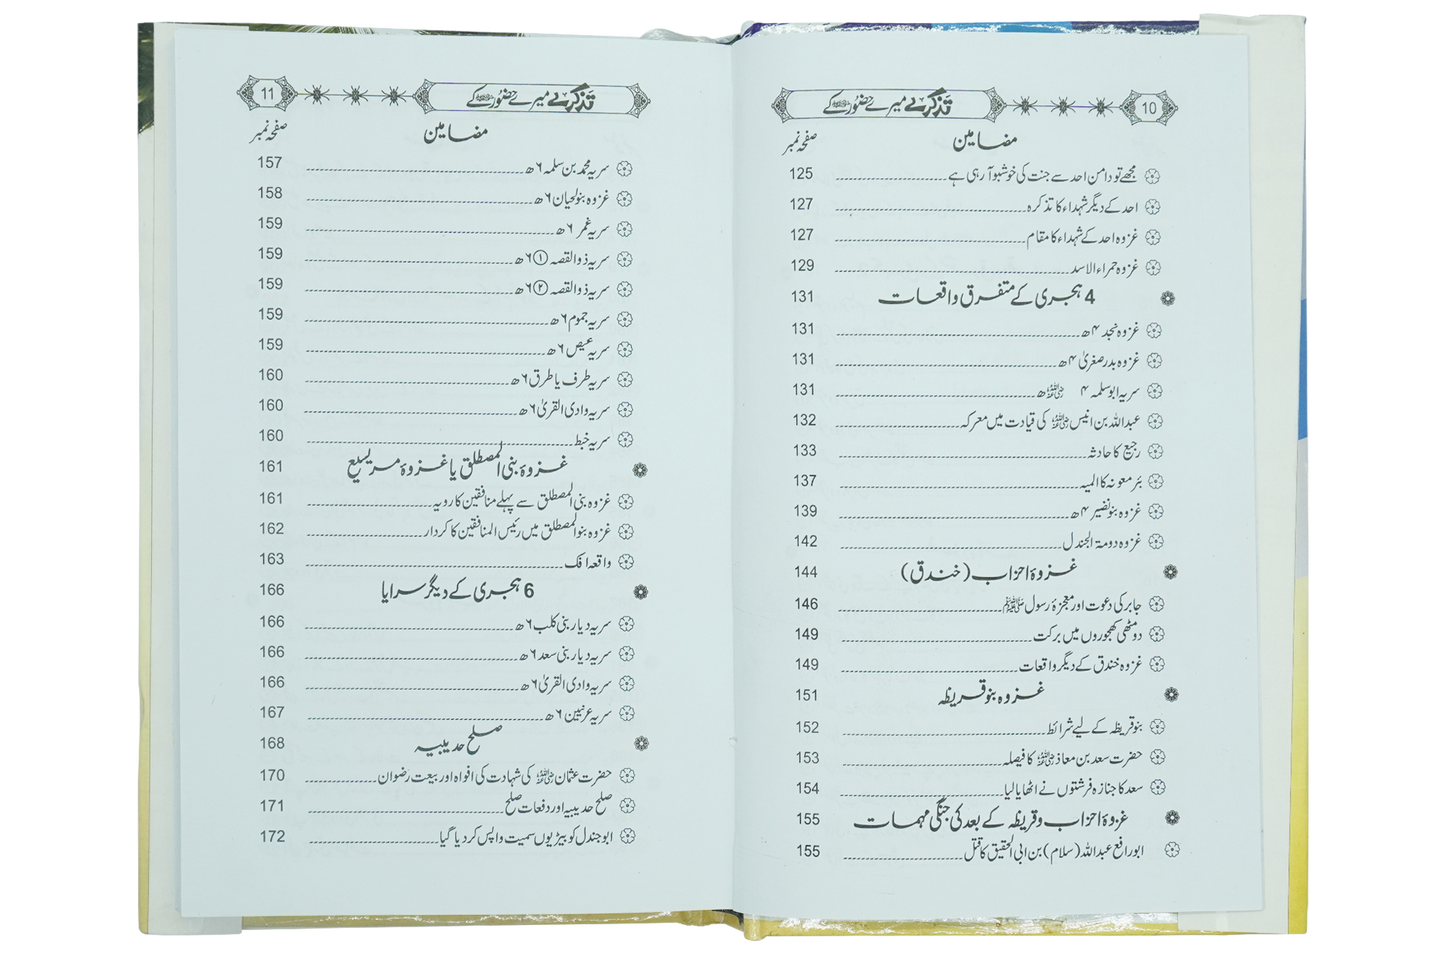 10 تذکرے میرے حضور ﷺ کے
مضامین صفحہ نمبر
مجھے تو دامن احد سے جنت کی خوشبو آ رہی ہے 125
احد کے دیگر شہداء کا تذکرہ 127
غزوہ احد کے شہداء کا مقام 127
غزوہ حمراء الاسد 129
4 ہجری کے متفرق واقعات 131
غزوہ نجد ۴ھ 131
غزوہ بدر صغریٰ ۴ھ 131
سریہ ابو سلمہ ۴ ﷺھ 131
عبداللہ بن انیس ﷺ کی قیادت میں معرکہ 132
رجیع کا حادثہ 133
بئر معونہ کا المیہ 137
غزوہ بنو نضیر ۴ھ 139
غزوہ دومۃ الجندل 142
غزوۂ احزاب (خندق) 144
جابر کی دعوت اور معجزۂ رسول ﷺ 146
دو مٹھی کھجوروں میں برکت 149
غزوہ خندق کے دیگر واقعات 149
غزوہ بنو قریظہ 151
بنو قریظہ کے لیے شرائط 152
حضرت سعد بن معاذ ﷺ کا فیصلہ 153
سعد کا جنازہ فرشتوں نے اٹھایا لیا 154
غزوۂ احزاب و قریظہ کے بعد کی جنگی مہمات 155
ابو رافع عبداللہ (سلام) بن ابی الحقیق کا قتل 155
11 تذکرے میرے حضور ﷺ کے
مضامین صفحہ نمبر
سریہ محمد بن سلمہ ۶ھ 157
غزوہ بنو لحیان ۶ھ 158
سریہ غمر ۶ھ 159
سریہ ذوالقصہ ① ۶ھ 159
سریہ ذوالقصہ ② ۶ھ 159
سریہ جموم ۶ھ 159
سریہ عیص ۶ھ 159
سریہ طرف یا طرق ۶ھ 160
سریہ وادی القریٰ ۶ھ 160
سریہ خبط 160
غزوۂ بنی المصطلق یا غزوۂ مریسیع 161
غزوہ بنی المصطلق سے پہلے منافقین کا رویہ 161
غزوہ بنو المصطلق میں رئیس المنافقین کا کردار 162
واقعہ افک 163
6 ہجری کے دیگر سرایا 166
سریہ دیار بنی کلب ۶ھ 166
سریہ دیار بنی سعد ۶ھ 166
سریہ وادی القریٰ ۶ھ 166
سریہ عرنیین ۶ھ 167
صلح حدیبیہ 168
حضرت عثمان ﷺ کی شہادت کی افواہ اور بیعت رضوان 170
صلح حدیبیہ اور دفعات صلح 171
ابو جندل کو بیڑیوں سمیت واپس کر دیا گیا 172